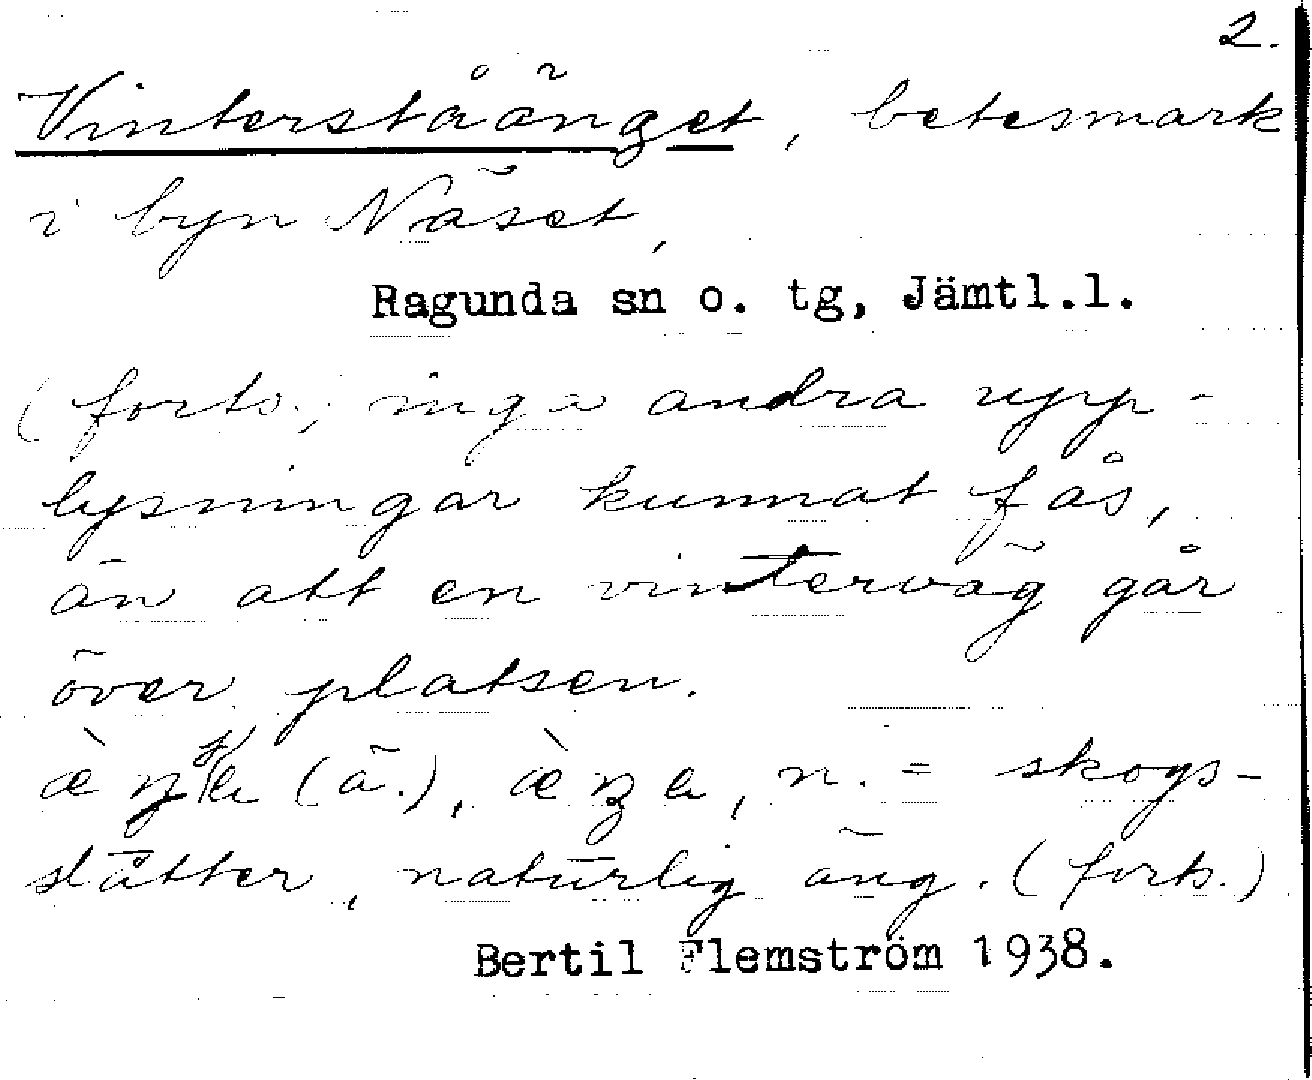 2.
Vinterståänget, betesmark
i byn Näset,
Ragunda sn o. tg, Jämtl.l.
(forts.; inga andra upp-
lysningar kunnat fås,
än att en vinterväg går
över platsen.
(ä.), n. = skogs-
slåtter, naturlig äng. (forts.)
Bertil Flemström 1938.